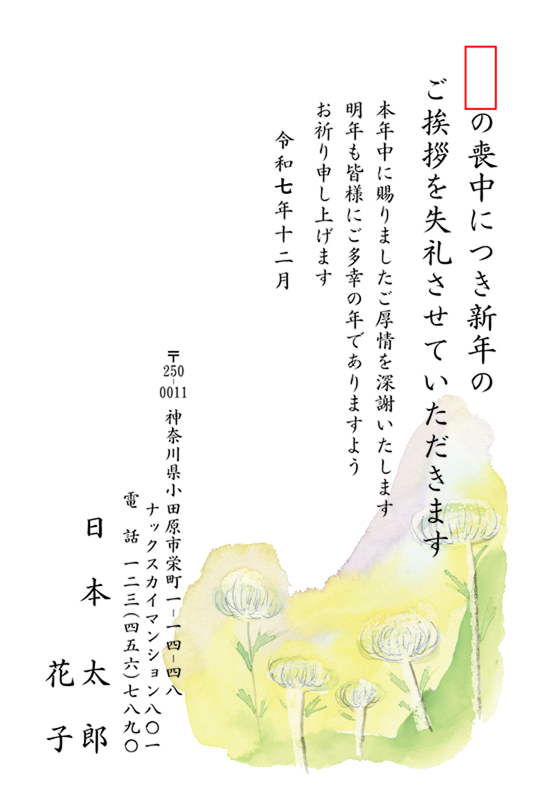 の喪中につき新年の
ご挨拶を失礼させていただきます
本年中に賜りましたご厚情を深謝いたします
明年も皆様にご多幸の年でありますよう
お祈り申し上げます
令和七年十二月
〒250-0011 神奈川県小田原市栄町一-一四-四八
ナックスカイマンション八〇一
電話 一二三(四五六)七八九〇
日本太郎
花子